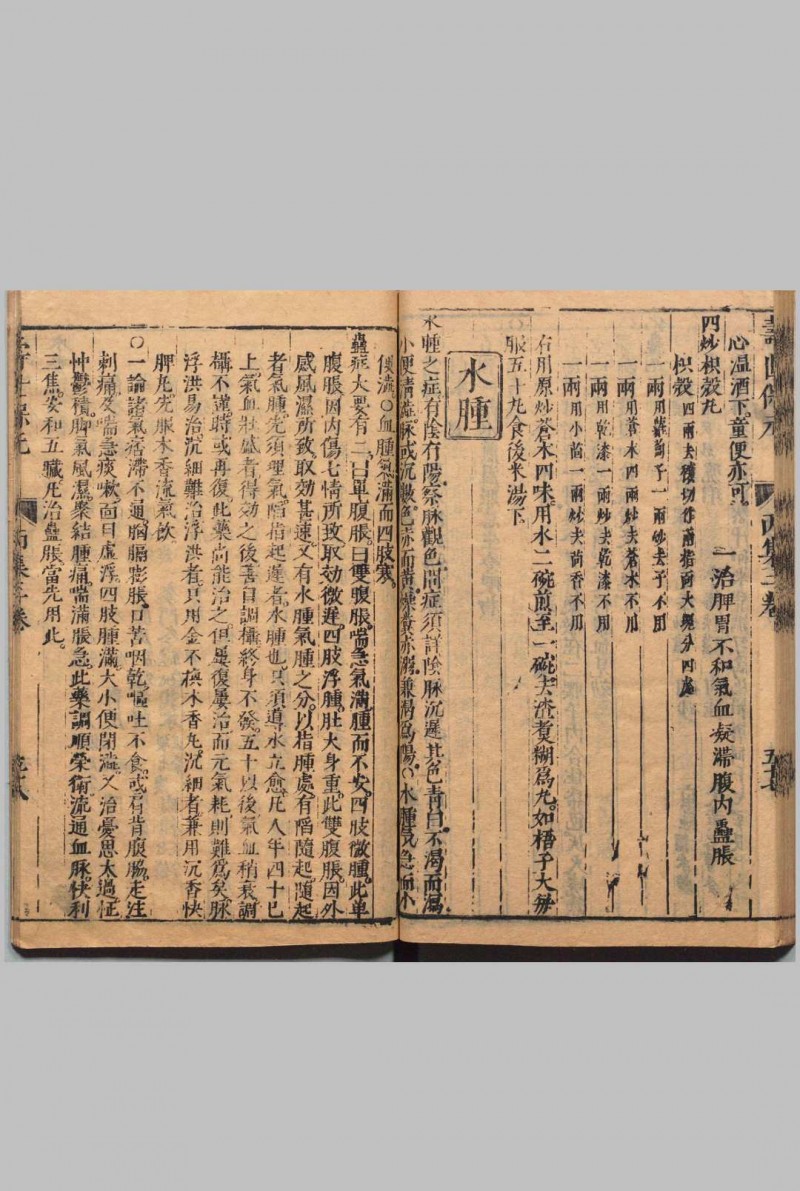 心溫酒下童便亦可
一治脾胃不和氣血凝滯腹內蠱脹
四炒枳殼丸
枳殼四兩去穰切作兩指面大塊分四處
一兩用蘿蔔子一兩炒去子不用
一兩用蒼朮四兩炒去蒼朮不用
一兩用乾漆一兩炒去乾漆不用
一兩用小茴一兩炒去茴香不用
右用原炒蒼朮四味用水二碗煎至一碗去渣煮糊爲丸如梧子大每
服五十丸食後米湯下
水腫
水腫之症有陰有陽察脉觀色問症須詳陰脉沉遲其色青白不渴而瀉
小便清澁脉或沉數色赤而黃燥糞赤溺兼渴爲陽〇水腫氣急而小
便澁〇血腫氣滿而四肢寒
蠱症大要有二曰單腹脹曰雙腹脹喘急氣滿腫而不安四肢微腫此單
腹脹因內傷七情所致取効微遲四肢浮腫肚大身重此雙腹脹因外
感風濕所致取効甚速又有水腫氣腫之分以指腫處有陷隨起隨起
者氣腫先須理氣陷指起遲者水腫也只須導水立愈凡人年四十已
上氣血壯盛者得効之後善自調攝終身不發五十以後氣血稍衰調
攝不謹時或再復此藥尚能治之但屢復屢治而元氣耗則難爲矣脉
浮洪易治沉細難治浮洪者只用金不換木香丸沉細者兼用沉香快
脾丸先服木香流氣飲
〇一論諸氣痞滯不通胸膈膨脹口苦咽乾嘔吐不食或肩背腹脇走注
刺痛及喘急痰嗽面目虛浮四肢腫滿大小便閉澁又治憂思太過怔
忡鬱積脚氣風濕聚結腫痛喘滿脹急此藥調順榮衛流通血脉快利
三焦安和五臟凡治蠱脹當先用此